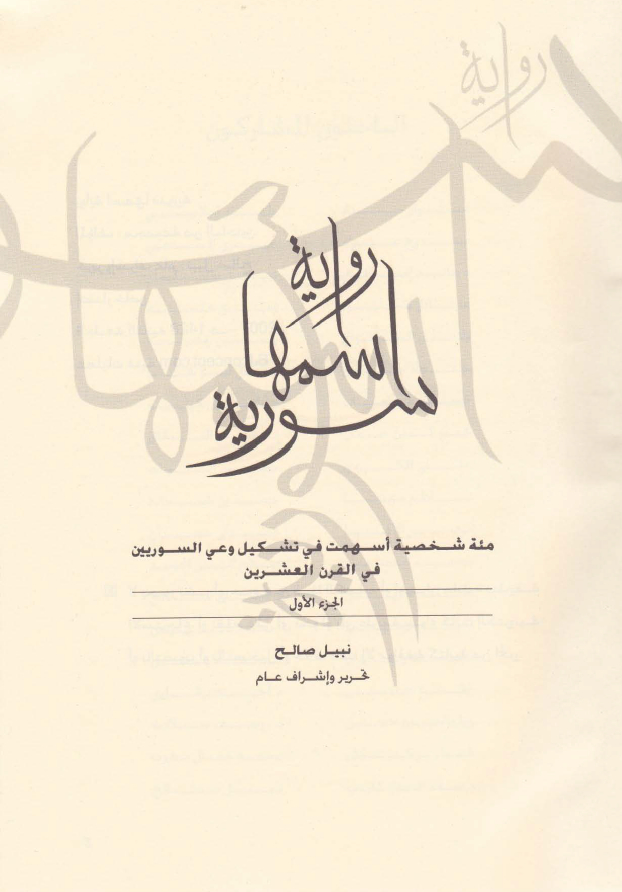 رواية
اسمها
سورية
مئة شخصية أسهمت في تشكيل وعي السوريين
في القرن العشرين
الجزء الأول
نبيل صالح
تحرير وإشراف عام